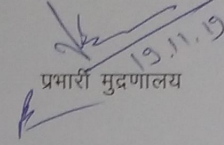 19.11.19
प्रभारी मुद्रणालय